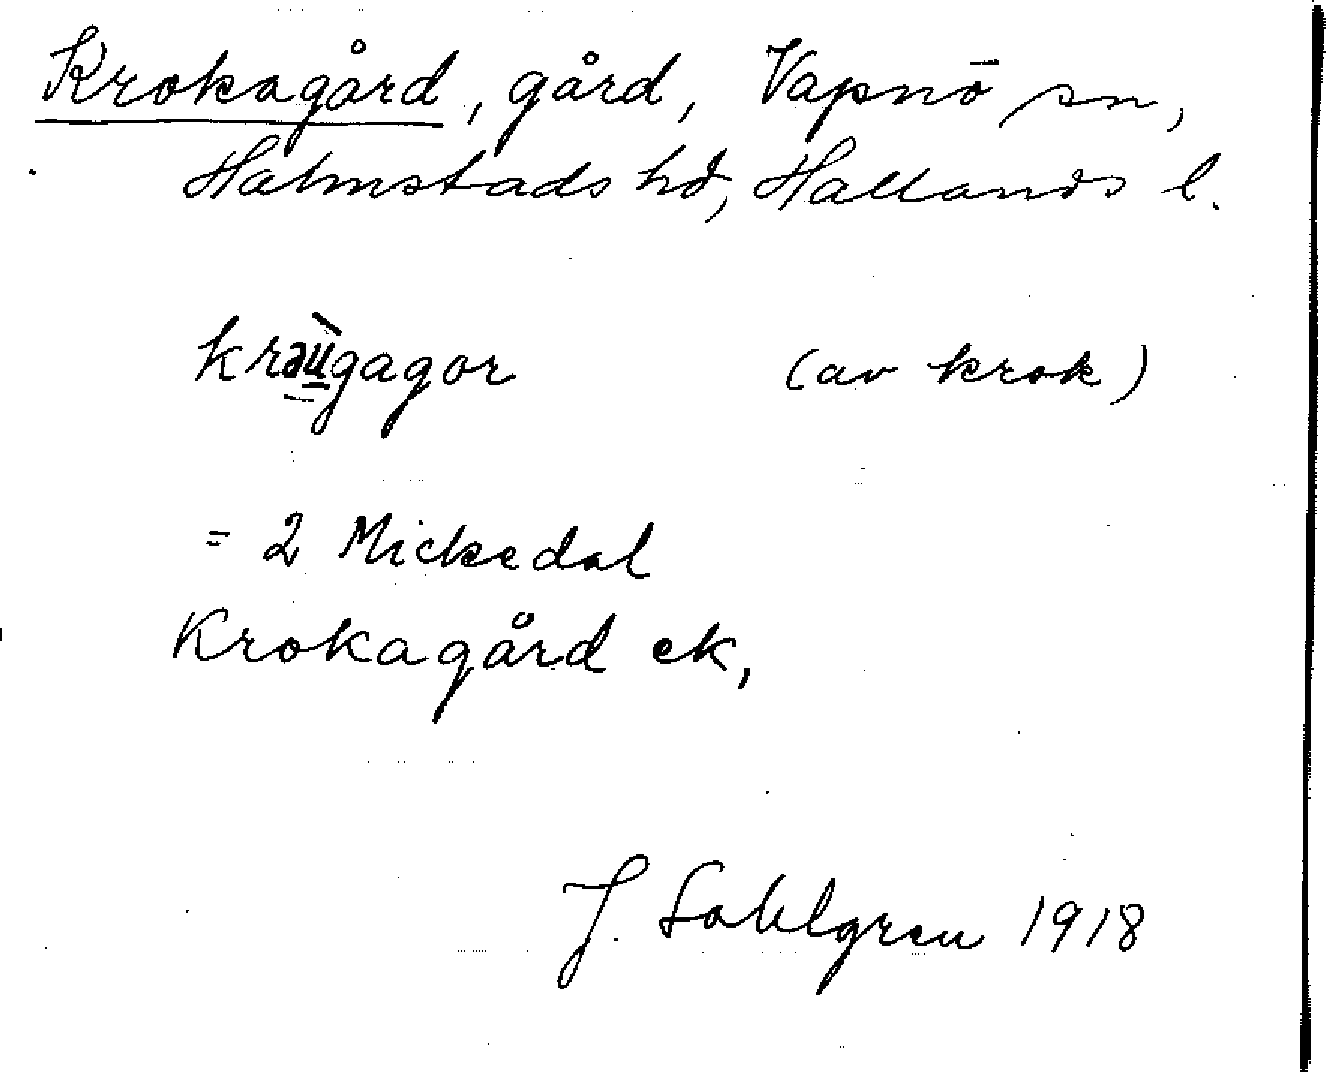 Krokagård, gård, Vapnö sn,
Halmstads hd, Hallands l.
krəùgagor (av krok)
= 2 Mickedal
Krokagård ek,
J. Sahlgren 1918